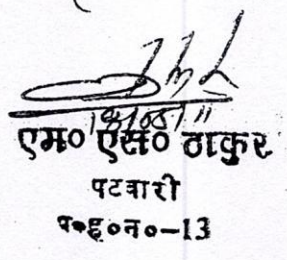 एम० एस० ठाकुर
पटवारी
प०ह०न०-13